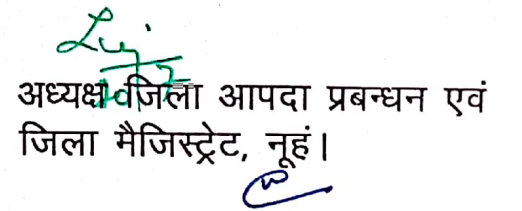 अध्यक्ष जिला आपदा प्रबन्धन एवं
जिला मैजिस्ट्रेट, नूहं।